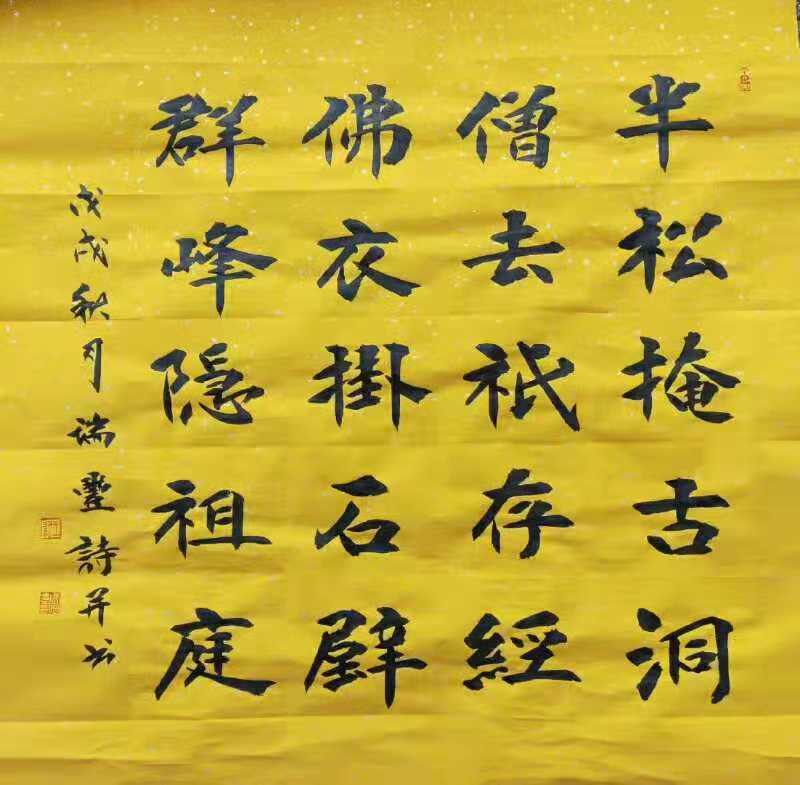 半松掩古洞
僧去祇存經
佛衣掛石壁
群峰隱祖庭
戊戌秋月瑞靈詩并书